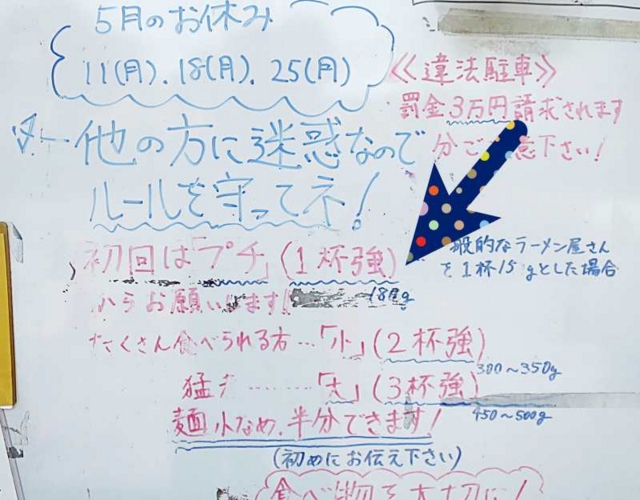 5月のお休み
11(月).18(月).25(月)
≪違法駐車≫
罰金3万円請求されます
分ご 意下さい!
他の方に迷惑なので
ルールを守ってネ!
初回は「プチ」(1杯強)
般的なラーメン屋さん
を1杯15 gとした場合
からお願いします!
180g
たくさん食べられる方…「小」(2杯強)
300~350g
猛 ………「大」(3杯強)
450~500g
麺少なめ、半分できます!
(初めにお伝え下さい)
食べ物を大切に!